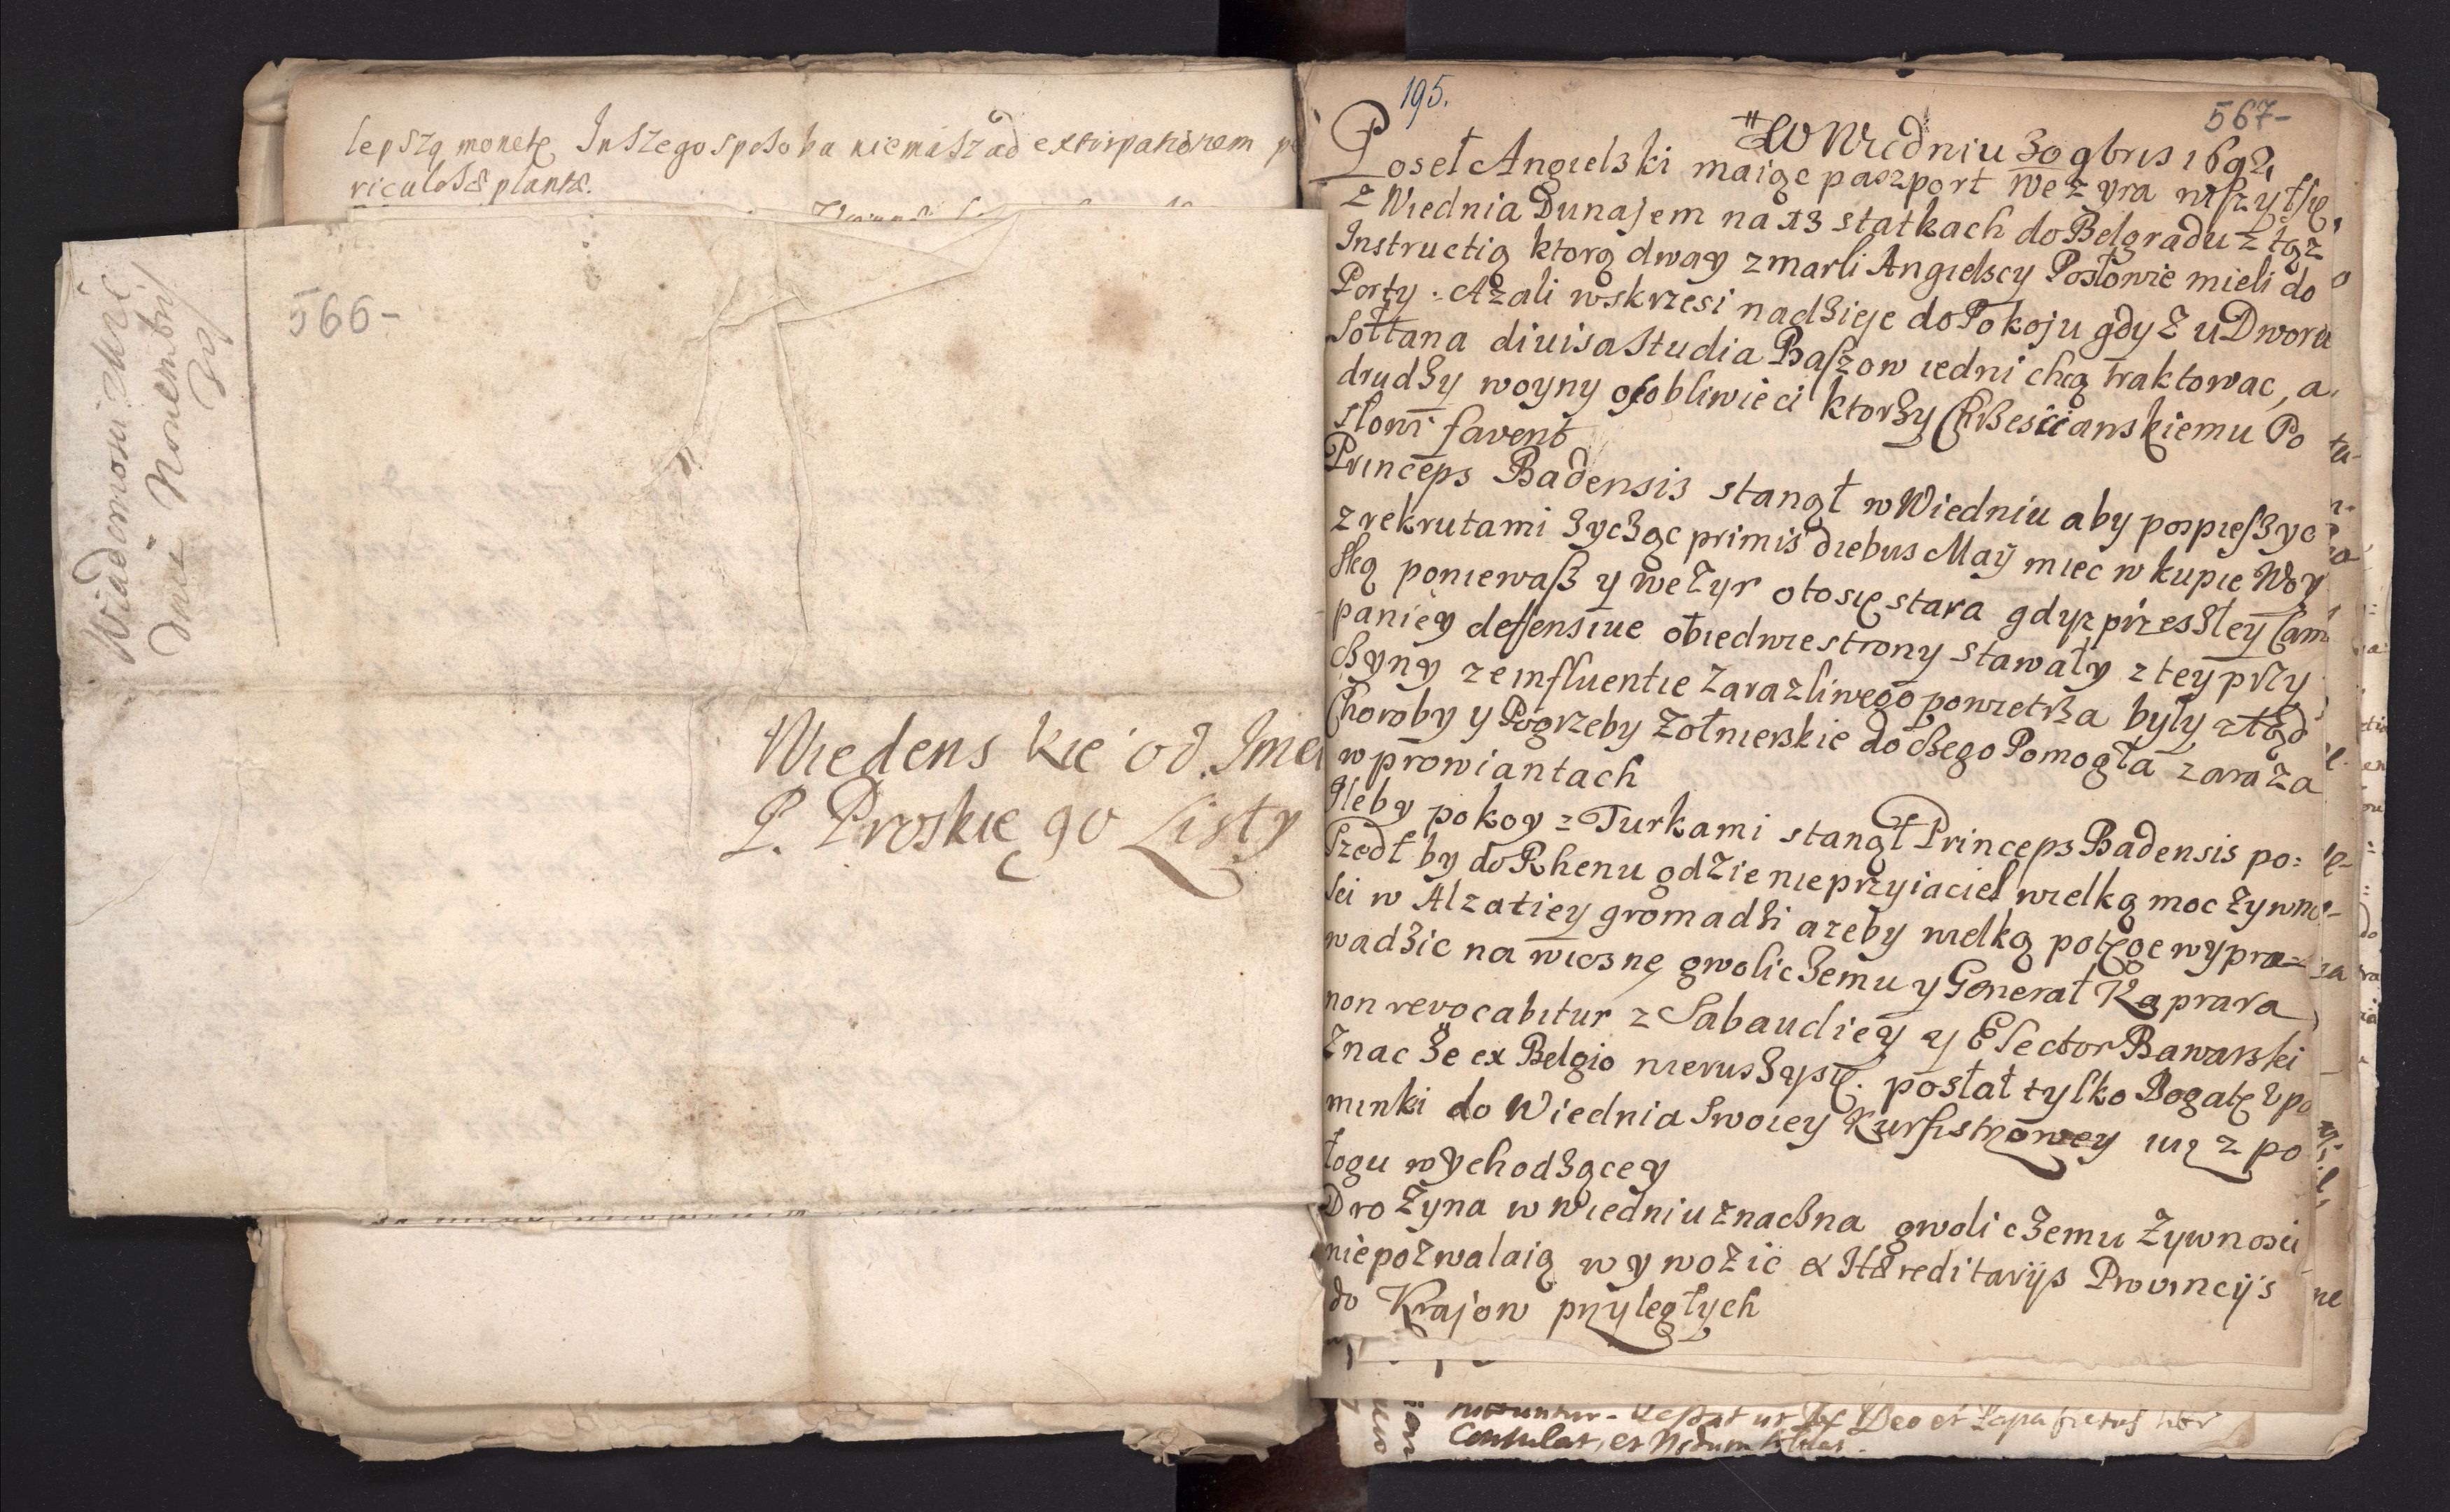 lepszą monetę Inszego sposobu niemasz ad extirpationem
riculosæ plantæ.
566-
Wiadomosci
dnia Nouembris
Wiedenskie od Ime
P. Proskiego Listy
195.
567-
W Wiedniu 30 9bris 1692
Poseł Angielski maiąc paszport Wezyra
z Wiednia Dunajem na 13 statkach do Belgradu z tąz
Instructią ktorą dway zmarli Angielscy Posłowie mieli do
Porty. Azali wskrzesi nadzieję do Pokoju gdyz u Dworu
Sołtana diuisa studia Baszow iedni chcą traktowac, a
drudzy woyny osobliwie ci ktorzy Chrzescianskiemu Po
słowi favent
Princeps Badensis stanął w Wiedniu aby pospieszyc
z rekrutami zycząc primis diebus Maij miec w kupie Woy
ską poniewasz y wezyr oto się stara gdyz przeszłey Cam
paniey deffensiue obiedwie strony stawały z tey przy
czyny ze influentie zarazliwego powietrza były ztąd
Choroby y Pogrzeby Zołnierskie do czego Pomogła zaraza
w prowiantach
Gleby pokoy z Turkami stanął Princeps Badensis po:
szedł by do Rhenu gdzie nieprzyiaciel wielką moc zywno-
sci w Alzatiey gromadzi azeby wielką potęgę wypro=
wadzic na wiosnę gwoli czemu y Generał Kaprara
non revocabitur z Sabaudiey y Elector Bawarski
Znac ze ex Belgio nieruszy się. posłał tylko Bogate upo
minki do Wiednia Swoiey Kurfistrzowey iuz z po
łogu wychodzącey
Drozyna w Wiedniu znaczna gwoli czemu Zywnosci
niepozwalaią wywozic ex Hæreditarijs Provincijs
do Krajow przyległych